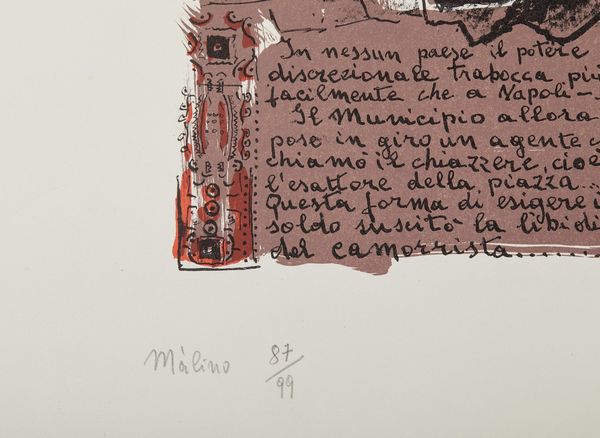 In nessun paese il potere
discrezionale trabocca più
facilmente che a Napoli-
Il Municipio allora
pose in giro un agente c
chiamò il chiazzere, cioè
l'esattore della piazza...
Questa forma di esigere i
soldo suscitò la libidi
del camorrista........
Màlino 87/99